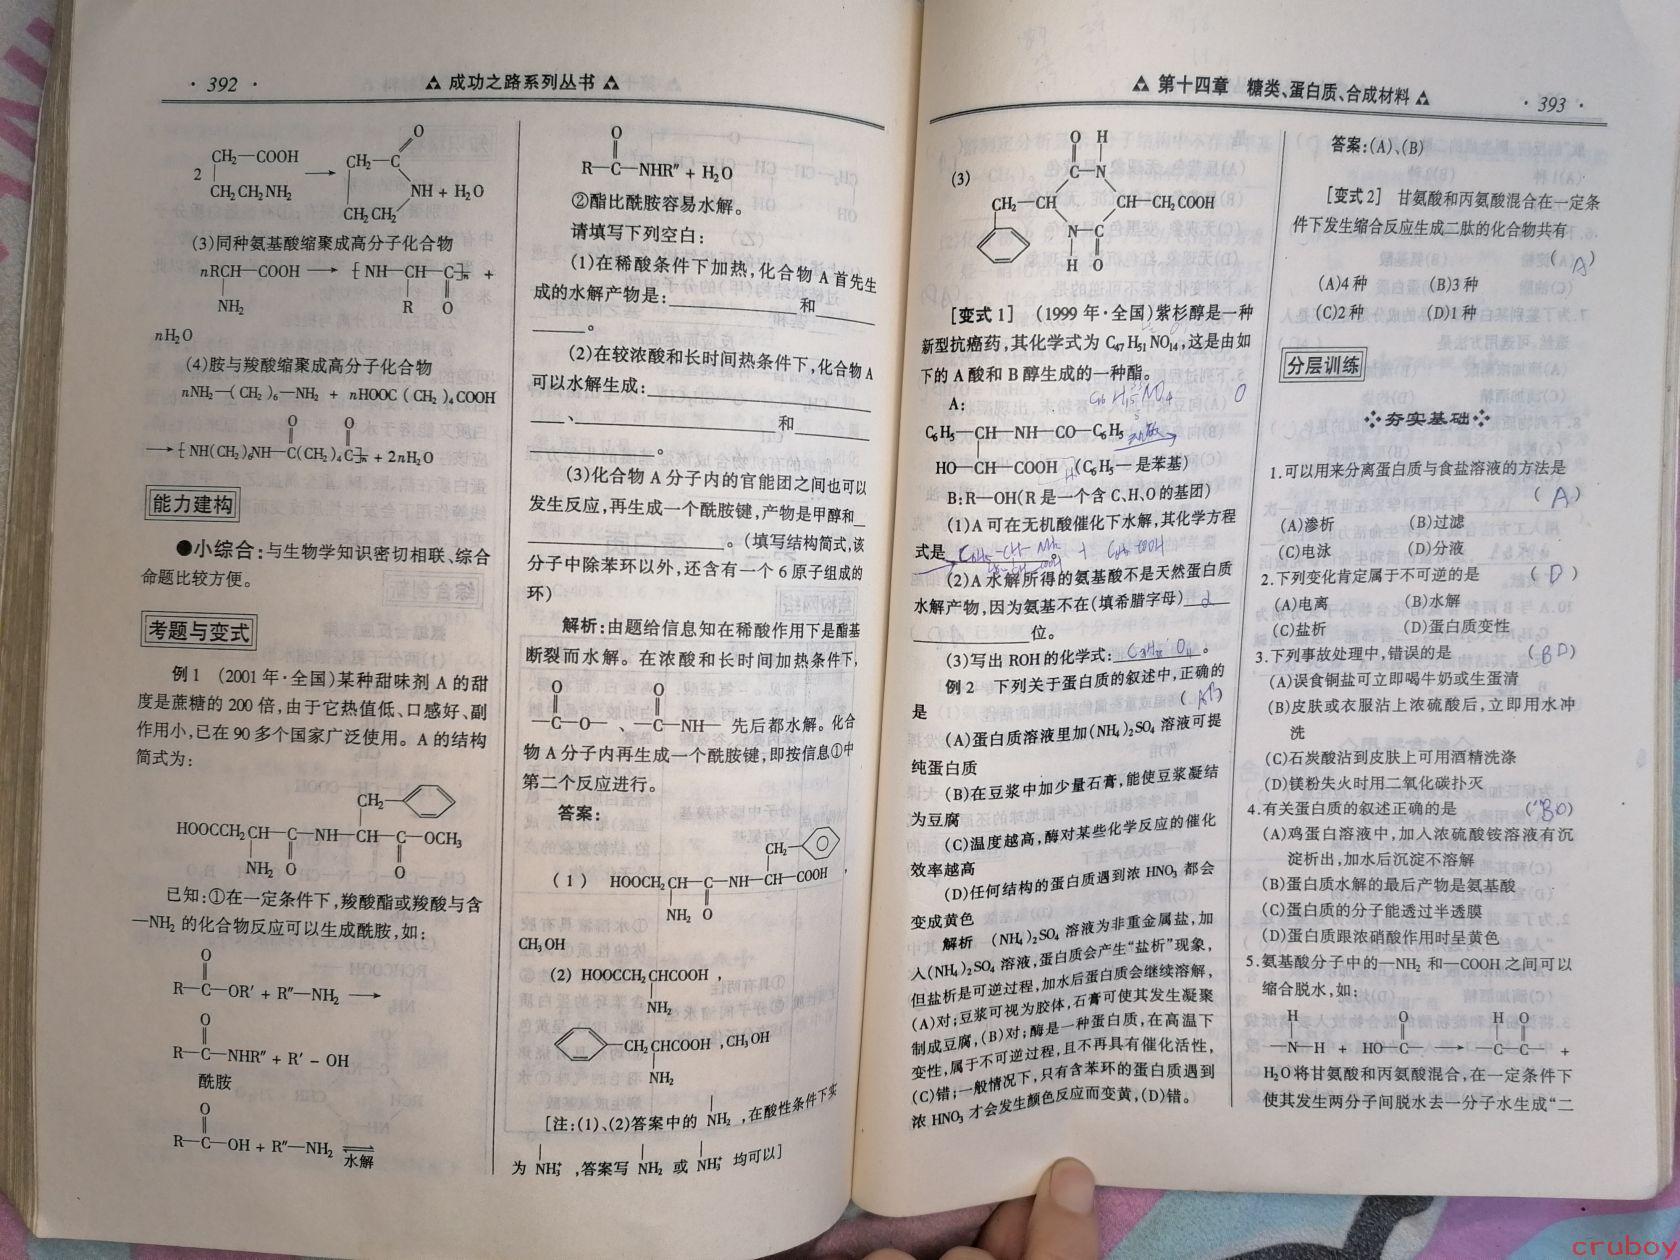 · 392 ·
成功之路系列丛书
2 CH₂—COOH
CH₂CH₂NH₂
→
CH₂—C
O
NH + H₂O
CH₂CH₂
(3)同种氨基酸缩聚成高分子化合物
nRCH—COOH → [NH—CH—C]ₙ +
NH₂ R O
nH₂O
(4)胺与羧酸缩聚成高分子化合物
nNH₂—(CH₂)₆—NH₂ + nHOOC(CH₂)₄COOH
O O
→[NH(CH₂)₆NH—C(CH₂)₄C]ₙ + 2nH₂O
能力建构
●小综合:与生物学知识密切相联、综合
命题比较方便。
考题与变式
例1 (2001年·全国)某种甜味剂A的甜
度是蔗糖的200倍,由于它热值低、口感好、副
作用小,已在90多个国家广泛使用。A的结构
简式为:
CH₂—
HOOCCH₂CH—C—NH—CH—C—OCH₃
NH₂ O O
已知:①在一定条件下,羧酸酯或羧酸与含
—NH₂的化合物反应可以生成酰胺,如:
O
R—C—OR′ + R″—NH₂ →
O
R—C—NHR″ + R′-OH
酰胺
O
R—C—OH + R″—NH₂ ⇌
水解
O
R—C—NHR″ + H₂O
②酯比酰胺容易水解。
请填写下列空白:
(1)在稀酸条件下加热,化合物A首先生
成的水解产物是: 和
。
(2)在较浓酸和长时间热条件下,化合物A
可以水解生成:
、 和
。
(3)化合物A分子内的官能团之间也可以
发生反应,再生成一个酰胺键,产物是甲醇和
。(填写结构简式,该
分子中除苯环以外,还含有一个6原子组成的
环)
解析:由题给信息知在稀酸作用下是酯基
断裂而水解。在浓酸和长时间加热条件下,
O O
—C—O—、—C—NH— 先后都水解。化合
物A分子内再生成一个酰胺键,即按信息①中
第二个反应进行。
答案:
CH₂—
(1) HOOCCH₂CH—C—NH—CH—COOH ,
NH₂ O
CH₃OH
(2) HOOCCH₂CHCOOH ,
NH₂
—CH₂CHCOOH ,CH₃OH
NH₂
[注:(1)、(2)答案中的 NH₂ ,在酸性条件下实
为 NH₃⁺ ,答案写 NH₂ 或 NH₃⁺ 均可以]
第十四章 糖类、蛋白质、合成材料
· 393 ·
O H
(3) C—N
CH₂—CH CH—CH₂COOH
N—C
H O
[变式1] (1999年·全国)紫杉醇是一种
新型抗癌药,其化学式为C₄₇H₅₁NO₁₄,这是由如
下的A酸和B醇生成的一种酯。
A:
C₆H₅—CH—NH—CO—C₆H₅
HO—CH—COOH (C₆H₅—是苯基)
B:R—OH(R是一个含C、H、O的基团)
(1)A可在无机酸催化下水解,其化学方程
式是
(2)A水解所得的氨基酸不是天然蛋白质
水解产物,因为氨基不在(填希腊字母)
位。
(3)写出ROH的化学式: 。
例2 下列关于蛋白质的叙述中,正确的
是 (AB)
(A)蛋白质溶液里加(NH₄)₂SO₄溶液可提
纯蛋白质
(B)在豆浆中加少量石膏,能使豆浆凝结
为豆腐
(C)温度越高,酶对某些化学反应的催化
效率越高
(D)任何结构的蛋白质遇到浓HNO₃都会
变成黄色
解析 (NH₄)₂SO₄溶液为非重金属盐,加
入(NH₄)₂SO₄溶液,蛋白质会产生“盐析”现象,
但盐析是可逆过程,加水后蛋白质会继续溶解,
(A)对;豆浆可视为胶体,石膏可使其发生凝聚
制成豆腐,(B)对;酶是一种蛋白质,在高温下
变性,属于不可逆过程,且不再具有催化活性,
(C)错;一般情况下,只有含苯环的蛋白质遇到
浓HNO₃才会发生颜色反应而变黄,(D)错。
答案:(A)、(B)
[变式2] 甘氨酸和丙氨酸混合在一定条
件下发生缩合反应生成二肽的化合物共有
(A)
(A)4种 (B)3种
(C)2种 (D)1种
分层训练
夯实基础
1.可以用来分离蛋白质与食盐溶液的方法是
(A)
(A)渗析 (B)过滤
(C)电泳 (D)分液
2.下列变化肯定属于不可逆的是 (D)
(A)电离 (B)水解
(C)盐析 (D)蛋白质变性
3.下列事故处理中,错误的是 (BD)
(A)误食铜盐可立即喝牛奶或生蛋清
(B)皮肤或衣服沾上浓硫酸后,立即用水冲
洗
(C)石炭酸沾到皮肤上可用酒精洗涤
(D)镁粉失火时用二氧化碳扑灭
4.有关蛋白质的叙述正确的是 (BD)
(A)鸡蛋白溶液中,加入浓硫酸铵溶液有沉
淀析出,加水后沉淀不溶解
(B)蛋白质水解的最后产物是氨基酸
(C)蛋白质的分子能透过半透膜
(D)蛋白质跟浓硝酸作用时呈黄色
5.氨基酸分子中的—NH₂和—COOH之间可以
缩合脱水,如:
H O H O
—N—H + HO—C— → —C—C— +
H₂O将甘氨酸和丙氨酸混合,在一定条件下
使其发生两分子间脱水去一分子水生成“二
cruboy